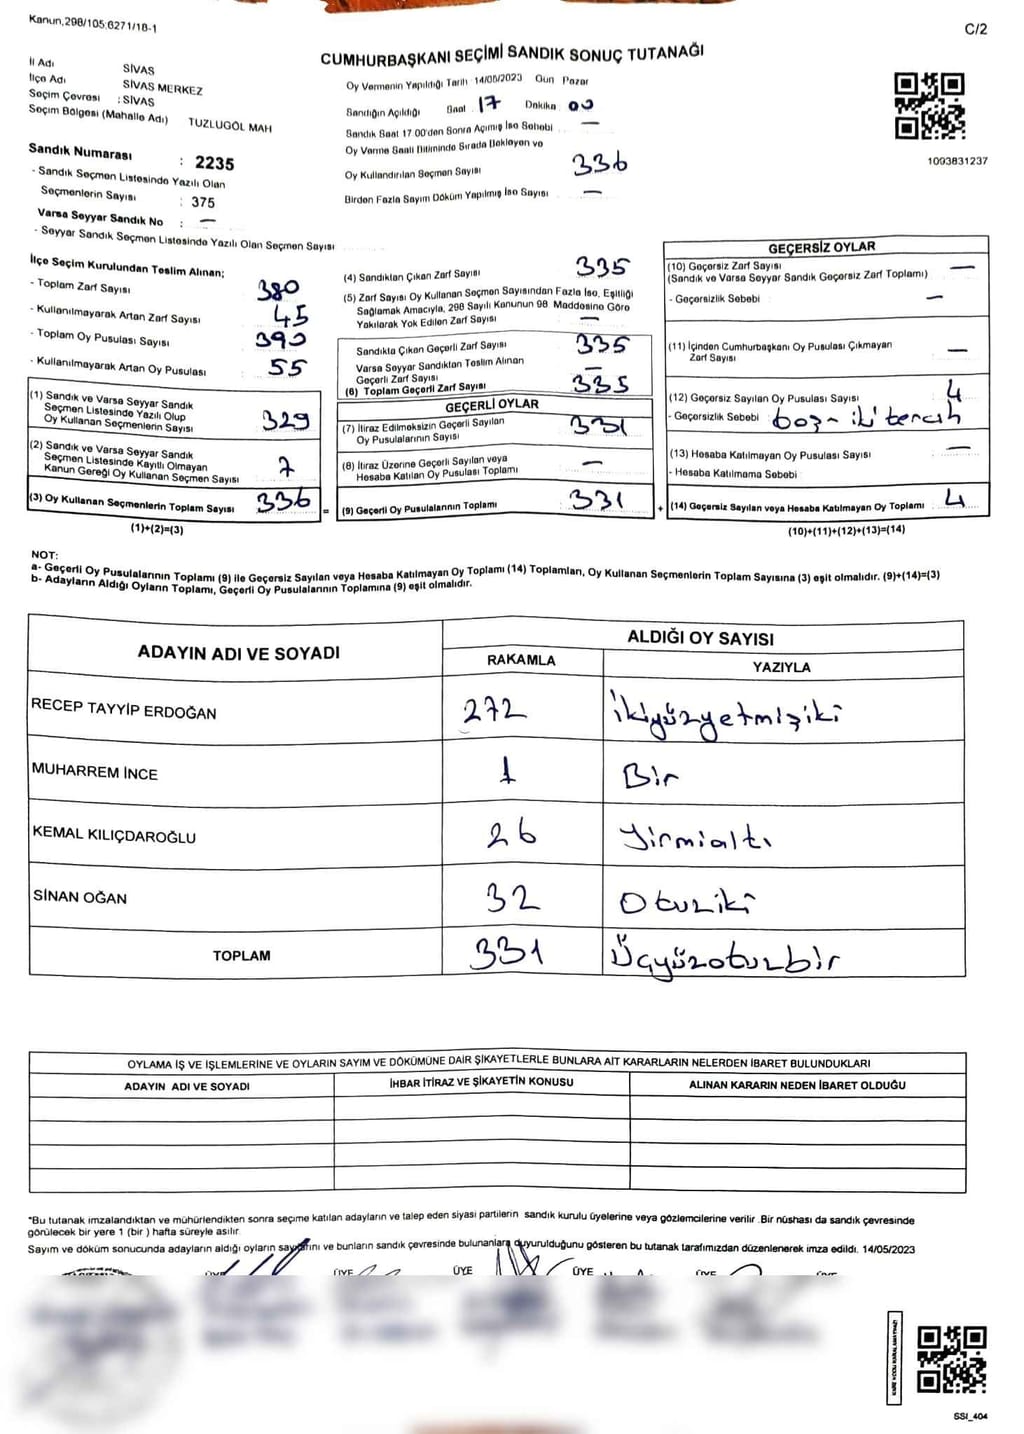 Kanun,298/105;6271/18-1
C/2
CUMHURBAŞKANI SEÇİMİ SANDIK SONUÇ TUTANAĞI
İl Adı SİVAS
İlçe Adı SİVAS MERKEZ
Seçim Çevresi : SİVAS
Seçim Bölgesi (Mahalle Adı) TUZLUGÖL MAH
Sandık Numarası : 2235
- Sandık Seçmen Listesinde Yazılı Olan
Seçmenlerin Sayısı : 375
Varsa Seyyar Sandık No : —
- Seyyar Sandık Seçmen Listesinde Yazılı Olan Seçmen Sayısı
Oy Vermenin Yapıldığı Tarih 14/05/2023 Gün Pazar
Sandığın Açıldığı Saat 17 Dakika 00
Sandık Saat 17.00'den Sonra Açımış İse Sebebi —
Oy Verme Saati Bitiminde Sırada Bekleyen ve
Oy Kullandırılan Seçmen Sayısı 336
Birden Fazla Sayım Döküm Yapılmış İse Sayısı —
1093831237
İlçe Seçim Kurulundan Teslim Alınan;
- Toplam Zarf Sayısı 380
- Kullanılmayarak Artan Zarf Sayısı 45
- Toplam Oy Pusulası Sayısı 390
- Kullanılmayarak Artan Oy Pusulası 55
(1) Sandık ve Varsa Seyyar Sandık
Seçmen Listesinde Yazılı Olup
Oy Kullanan Seçmenlerin Sayısı 329
(2) Sandık ve Varsa Seyyar Sandık
Seçmen Listesinde Kayıtlı Olmayan
Kanun Gereği Oy Kullanan Seçmen Sayısı 7
(3) Oy Kullanan Seçmenlerin Toplam Sayısı 336 =
(1)+(2)=(3)
(4) Sandıktan Çıkan Zarf Sayısı 335
(5) Zarf Sayısı Oy Kullanan Seçmen Sayısından Fazla İse, Eşitliği
Sağlamak Amacıyla, 298 Sayılı Kanunun 98 Maddesine Göre
Yakılarak Yok Edilen Zarf Sayısı —
Sandıkta Çıkan Geçerli Zarf Sayısı 335
Varsa Seyyar Sandıktan Teslim Alınan
Geçerli Zarf Sayısı —
(6) Toplam Geçerli Zarf Sayısı 335
GEÇERLİ OYLAR
(7) İtiraz Edilmeksizin Geçerli Sayılan
Oy Pusulalarının Sayısı 331
(8) İtiraz Üzerine Geçerli Sayılan veya
Hesaba Katılan Oy Pusulası Toplamı —
(9) Geçerli Oy Pusulalarının Toplamı 331 +
GEÇERSİZ OYLAR
(10) Geçersiz Zarf Sayısı —
(Sandık ve Varsa Seyyar Sandık Geçersiz Zarf Toplamı)
- Geçersizlik Sebebi —
(11) İçinden Cumhurbaşkanı Oy Pusulası Çıkmayan
Zarf Sayısı —
(12) Geçersiz Sayılan Oy Pusulası Sayısı 4
- Geçersizlik Sebebi boş - iki tercih
(13) Hesaba Katılmayan Oy Pusulası Sayısı —
- Hesaba Katılmama Sebebi
(14) Geçersiz Sayılan veya Hesaba Katılmayan Oy Toplamı 4
(10)+(11)+(12)+(13)=(14)
NOT:
a- Geçerli Oy Pusulalarının Toplamı (9) ile Geçersiz Sayılan veya Hesaba Katılmayan Oy Toplamı (14) Toplamları, Oy Kullanan Seçmenlerin Toplam Sayısına (3) eşit olmalıdır. (9)+(14)=(3)
b- Adayların Aldığı Oyların Toplamı, Geçerli Oy Pusulalarının Toplamına (9) eşit olmalıdır.
ADAYIN ADI VE SOYADI ALDIĞI OY SAYISI
RAKAMLA YAZIYLA
RECEP TAYYİP ERDOĞAN 272 İkiyüzyetmişiki
MUHARREM İNCE 1 Bir
KEMAL KILIÇDAROĞLU 26 Yirmialtı
SİNAN OĞAN 32 Otuziki
TOPLAM 331 Üçyüzotuzbir
OYLAMA İŞ VE İŞLEMLERİNE VE OYLARIN SAYIM VE DÖKÜMÜNE DAİR ŞİKAYETLERLE BUNLARA AİT KARARLARIN NELERDEN İBARET BULUNDUKLARI
ADAYIN ADI VE SOYADI İHBAR İTİRAZ VE ŞİKAYETİN KONUSU ALINAN KARARIN NEDEN İBARET OLDUĞU
*Bu tutanak imzalandıktan ve mühürlendikten sonra seçime katılan adayların ve talep eden siyasi partilerin sandık kurulu üyelerine veya gözlemcilerine verilir .Bir nüshası da sandık çevresinde
görülecek bir yere 1 (bir ) hafta süreyle asılır.
Sayım ve döküm sonucunda adayların aldığı oyların sayılarını ve bunların sandık çevresinde bulunanlara duyurulduğunu gösteren bu tutanak tarafımızdan düzenlenerek imza edildi. 14/05/2023
ÜYE ÜYE ÜYE ÜYE
SSI_404